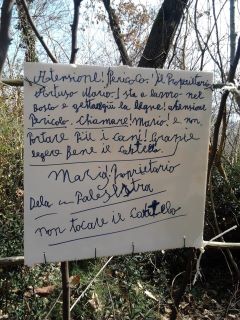 Atensione! Pericolo! Il Propietario
Artuso Mario! sta a lavora nel
Bosco e gettargiù la legne! atensione
Pericolo. Chamare! Mario! e non
Portare Più i cani! Grazie
legere Bene il cartelo
Mario! Proprietario
Dela Palestra
non tocare il cartelo